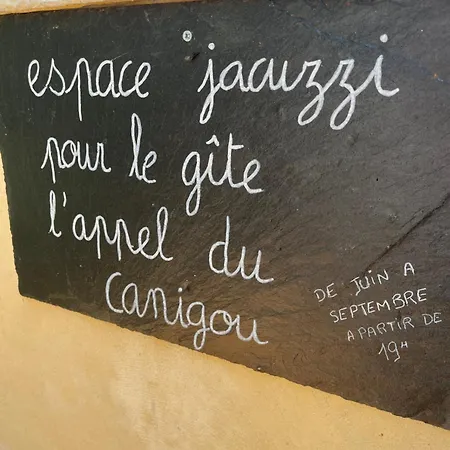 espace jacuzzi
pour le gîte
l'appel du
Canigou
DE JUIN A
SEPTEMBRE
A PARTIR DE
19H